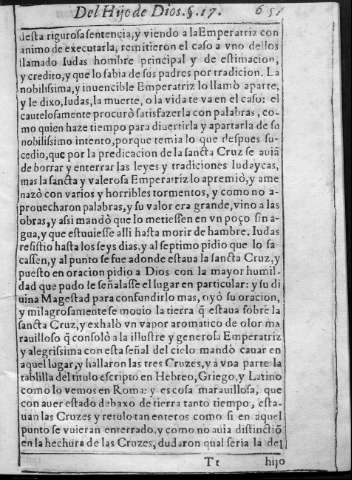 Del Hijo de Dios. §. 17. 651
desta rigurosa sentencia, y viendo a la Emperatriz con
animo de executarla, remitieron el caso a vno dellos
llamado Iudas hombre principal y de estimacion,
y credito, y que lo sabia de sus padres por tradicion. La
nobilissima, y inuencible Emperatriz lo llamò aparte,
y le dixo, Iudas, la muerte, o la vida te va en el caso: el
cautelosamente procurò satisfazerla con palabras, co-
mo quien haze tiempo para diuertirla y apartarla de su
nobilissimo intento, porque temia lo que despues su-
cedio, que por la predicacion de la sancta Cruz se auiã
de borrar y enterrar las leyes y tradiciones Iudaycas,
mas la sancta y valerosa Emperatriz lo apremiò, y ame
nazò con varios y horribles tormentos, y como no a-
prouecharon palabras, y su valor era grande, vino a las
obras, y assi mandò que lo metiessen en vn poço sin a-
gua, y que estuuiesse alli hasta morir de hambre. Iudas
resistio hasta los seys dias, y al septimo pidio que lo sa-
cassen, y al punto se fue adonde estaua la sancta Cruz, y
puesto en oracion pidio a Dios con la mayor humil-
dad que pudo le señalasse el lugar en particular: y su di
uina Magestad para confundirlo mas, oyò su oracion,
y milagrosamente se mouio la tierra q̃ estaua sobre la
sancta Cruz, y exhalò vn vapor aromatico de olor ma
rauilloso q̃ consolò a la illustre y generosa Emperatriz
y alegrissima con esta señal del cielo mandò cauar en
aquel lugar, y hallaron las tres Cruzes, y a vna parte la
tablilla del titulo escripto en Hebreo, Griego, y Latino
como lo vemos en Roma: y es cosa marauillosa, que
con auer estado debaxo de tierra tanto tiempo, esta-
uan las Cruzes y retulo tan enteros como si en aquel
punto se vuieran enterrado, y como no auia distinctiõ
en la hechura de las Cruzes, dudaron qual seria la del
Tt hijo